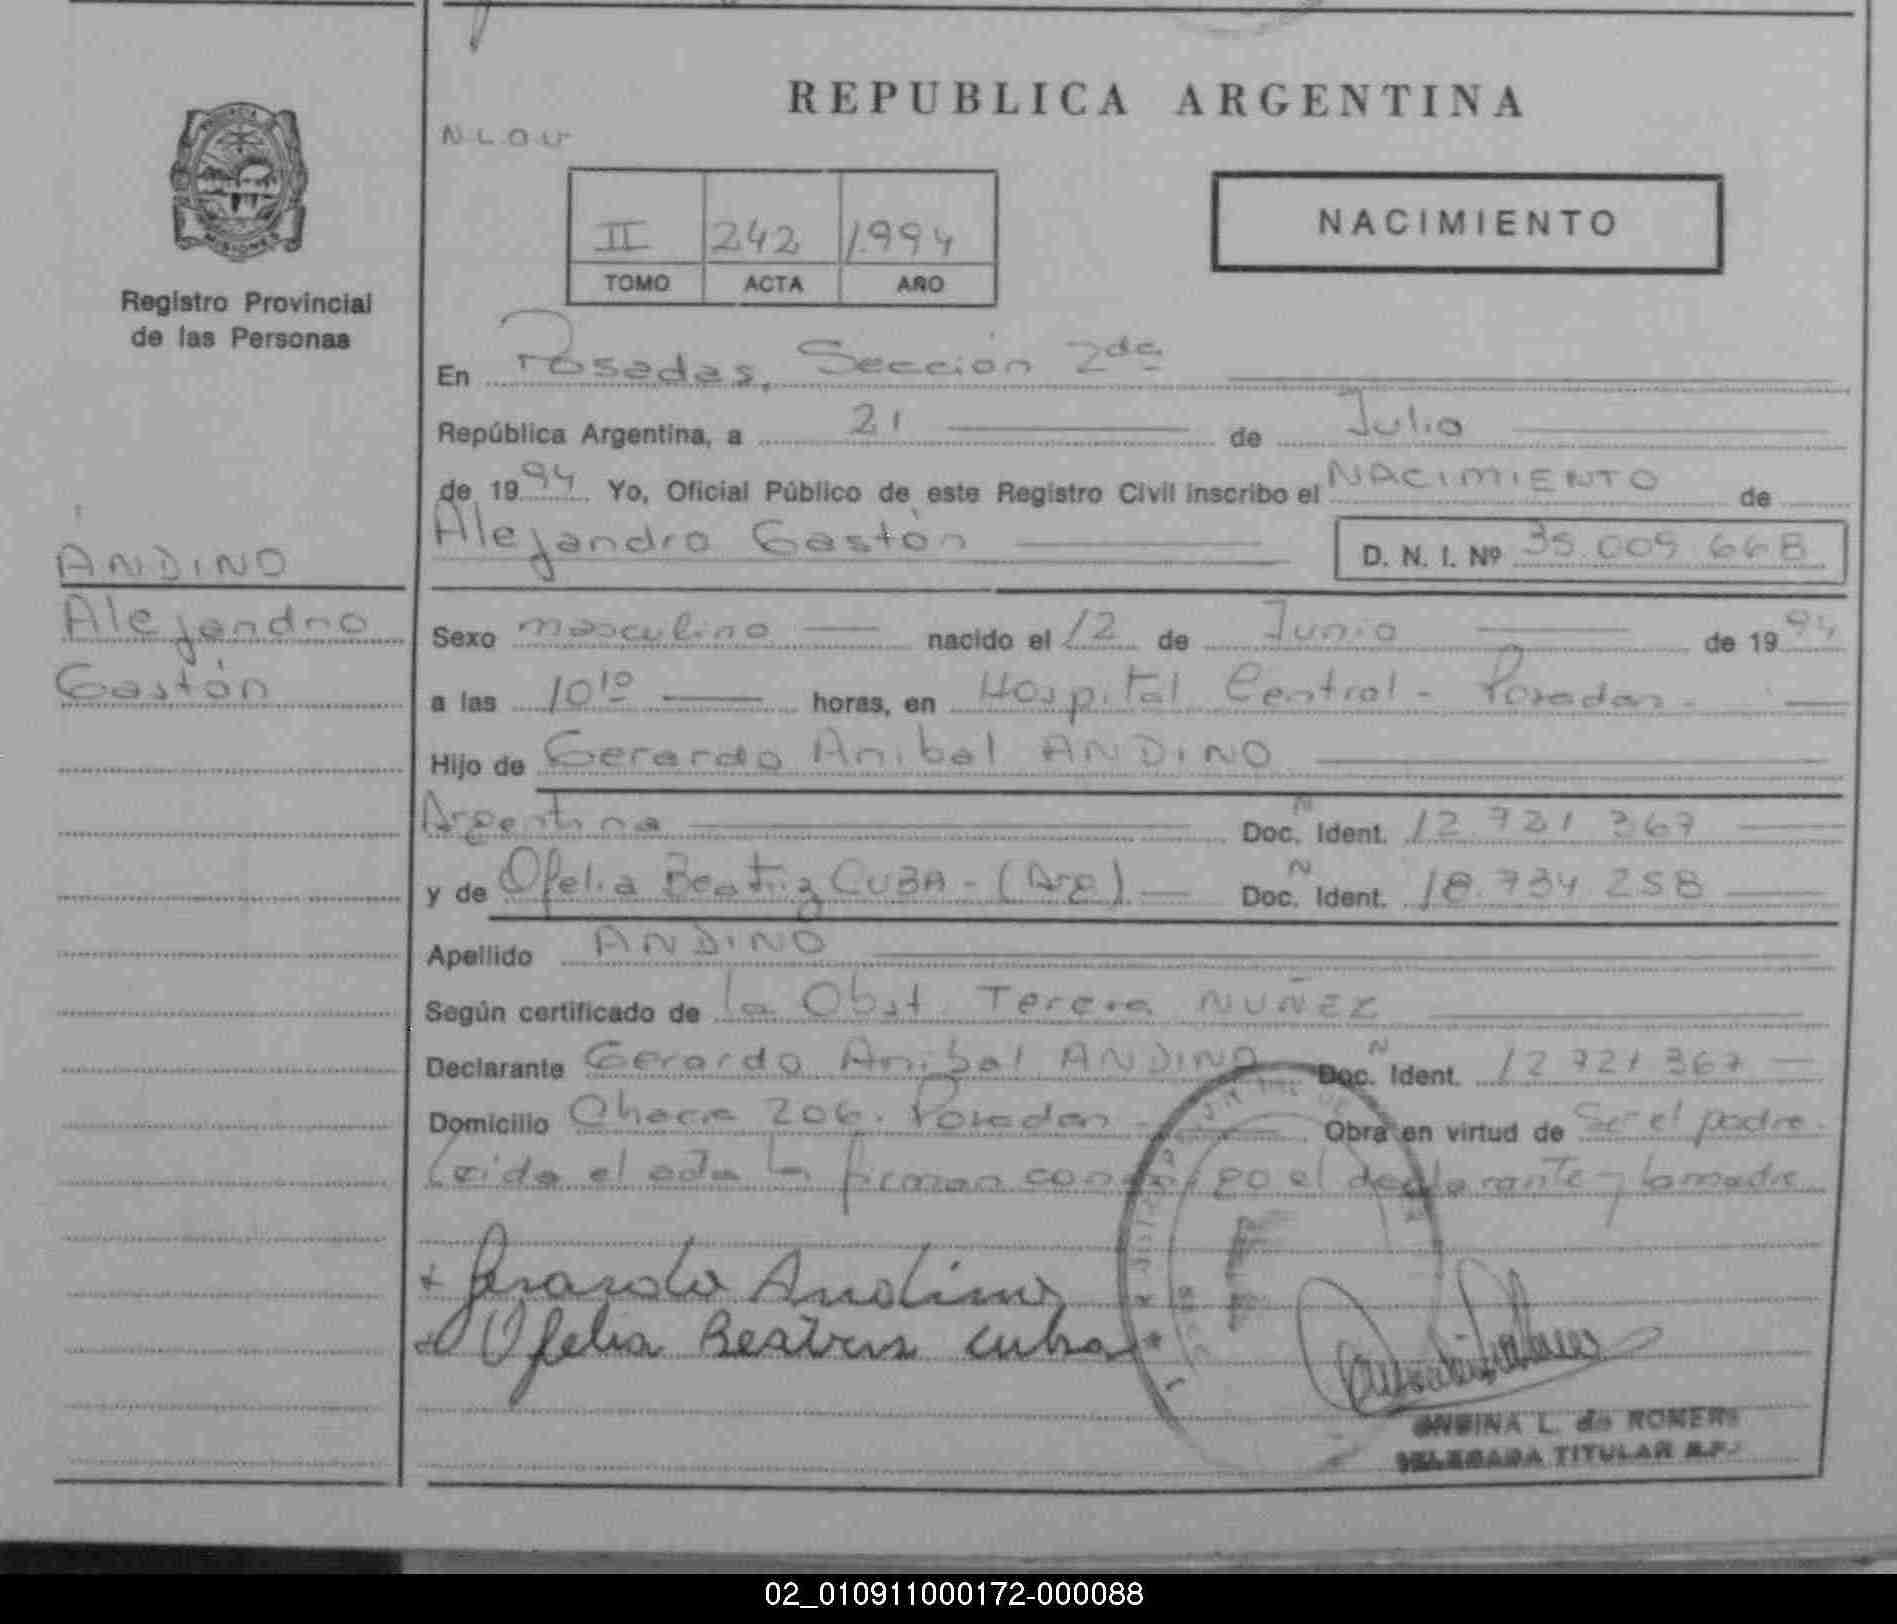 REPUBLICA ARGENTINA
N.L.O.U
PROVINCIA
MISIONES
Registro Provincial
de las Personas
II 242 1994
TOMO ACTA AÑO
NACIMIENTO
En Posadas, Sección 2da
República Argentina, a 21 de Julio
de 1994 Yo, Oficial Público de este Registro Civil inscribo el NACIMIENTO de
Alejandro Gastón D. N. I. Nº 35.009.668
ANDINO
Alejandro
Gastón
Sexo masculino nacido el 12 de Junio de 1994
a las 10 10 horas, en Hospital Central - Posadas -
Hijo de Gerardo Anibal ANDINO
Argentina Doc. N Ident. 12.721.367
y de Ofelia Beatriz CUBA - (Arg) Doc. N Ident. 18.734.258
Apellido ANDINO
Según certificado de la Obst. Teresa NUÑEZ
Declarante Gerardo Anibal ANDINO Doc. N Ident. 12.721.367
Domicilio Chacra 206. Posadas - Obra en virtud de Ser el padre.
Leída el acta la firman conmigo el declarante y la madre
+ Gerardo Andino
+ Ofelia Beatris Cuba
L. de ROMERO
DELEGADA TITULAR R.P.
02_010911000172-000088